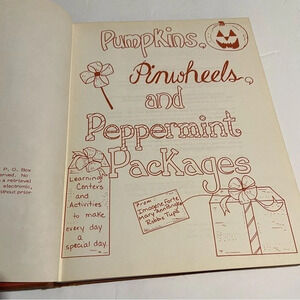 Pumpkins,
Pinwheels,
and
Peppermint
Packages
Learning
Centers
and
Activities
to make
every day
a
special day.
From
Imogene Forte,
Mary Ann Pangle
Robbie Tupa
P. O. Box
erved. No
a retrieval
electronic,
ithout prior